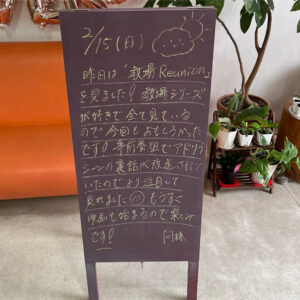 2/15(日)
昨日は「教場Reunion」
を見ました!教場シリーズ
が好きで全て見ている
ので今回もおもしろかった
です!事前番組でアドリブ
シーンの裏話が放送されて
いたのでより注目して
見れました もうすぐ
映画も始まるので楽しみ
です!